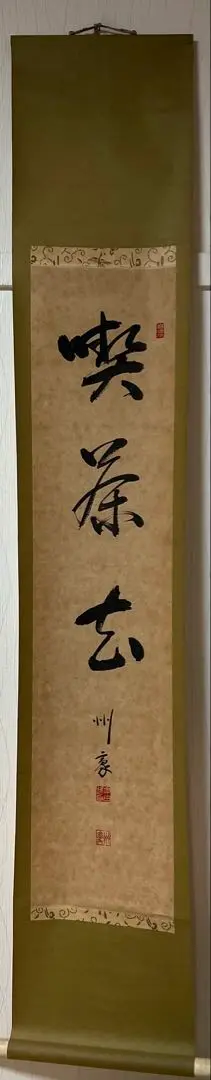 喫茶去
州豪